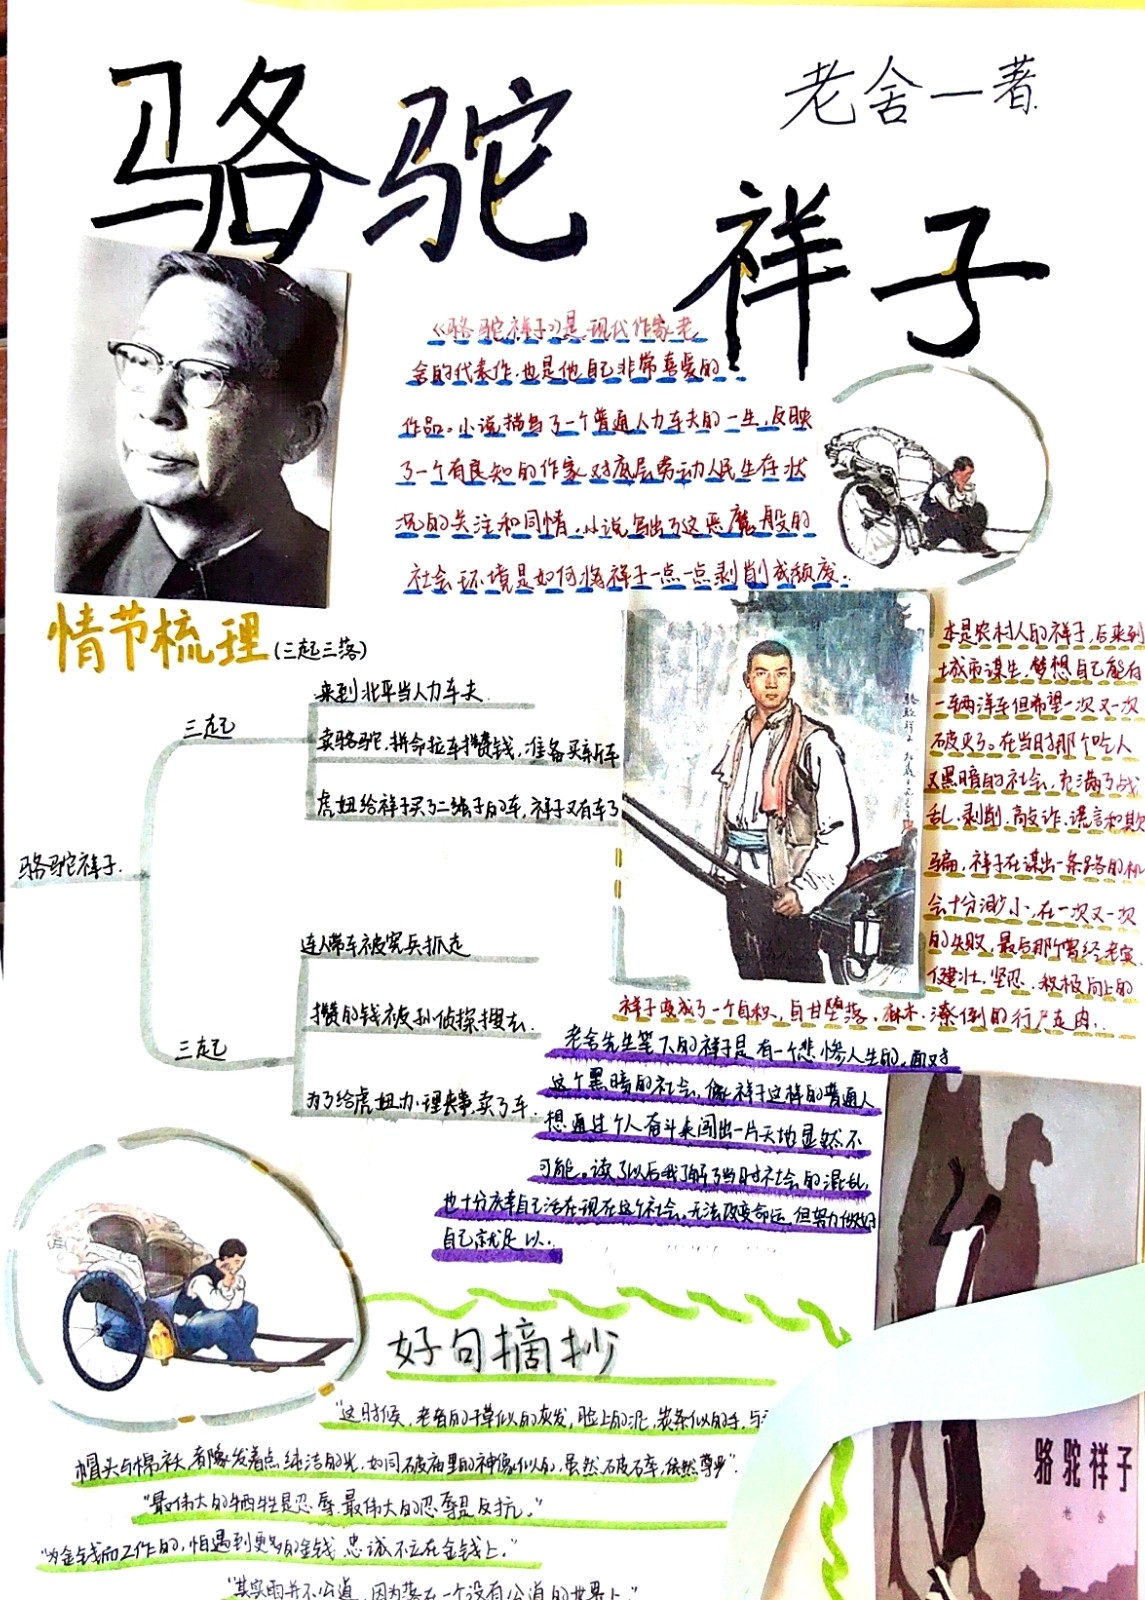 骆驼
祥子
老舍一著
《骆驼祥子》是现代作家老
舍的代表作,也是他自己非常喜爱的
作品。小说描写了一个普通人力车夫的一生,反映
了一个有良知的作家对底层劳动人民生存状
况的关注和同情。小说写出了这恶魔般的
社会环境是如何将祥子一点一点剥削成颓废.
情节梳理(三起三落)
骆驼祥子.
三起
来到北平当人力车夫.
卖骆驼,拼命拉车攒钱,准备买新车
虎妞给祥子买了二强子的车,祥子又有车了
三起
连人带车被宪兵抓走
攒的钱被孙侦探搜去.
为了给虎妞办理丧事,卖了车.
本是农村人的祥子,后来到
城市谋生,梦想自己能有
一辆洋车但希望一次又一次
破灭了。在当时那个吃人
又黑暗的社会,充满了战
乱、剥削、敲诈、谎言和欺
骗,祥子在谋出一条路的机
会十分渺小,在一次又一次
的失败,最后那个曾经老实、
健壮、坚忍、积极向上的
祥子变成了一个自私、自甘堕落、麻木、潦倒的行尸走肉.
老舍先生笔下的祥子是有一个悲惨人生的,面对
这个黑暗的社会,像祥子这样的普通人
想通过个人奋斗来闯出一片天地显然不
可能。读了以后我了解了当时社会的混乱
也十分庆幸自己活在现在这个社会,无法改变命运,但努力做好
自己就足以.
好句摘抄
"这时候,老者的干草似的灰发,脸上的泥,炭条似的手,与
帽头与棉袄,都像发着点纯洁的光,如同破庙里的神像似的,虽然破碎,依然尊严".
"最伟大的牺牲是忍辱,最伟大的忍辱是反抗."
"为金钱而工作的,怕遇到更多的金钱,忠诚不立在金钱上."
"其实雨并不公道,因为落在一个没有公道的世界上."
骆驼祥子
老舍